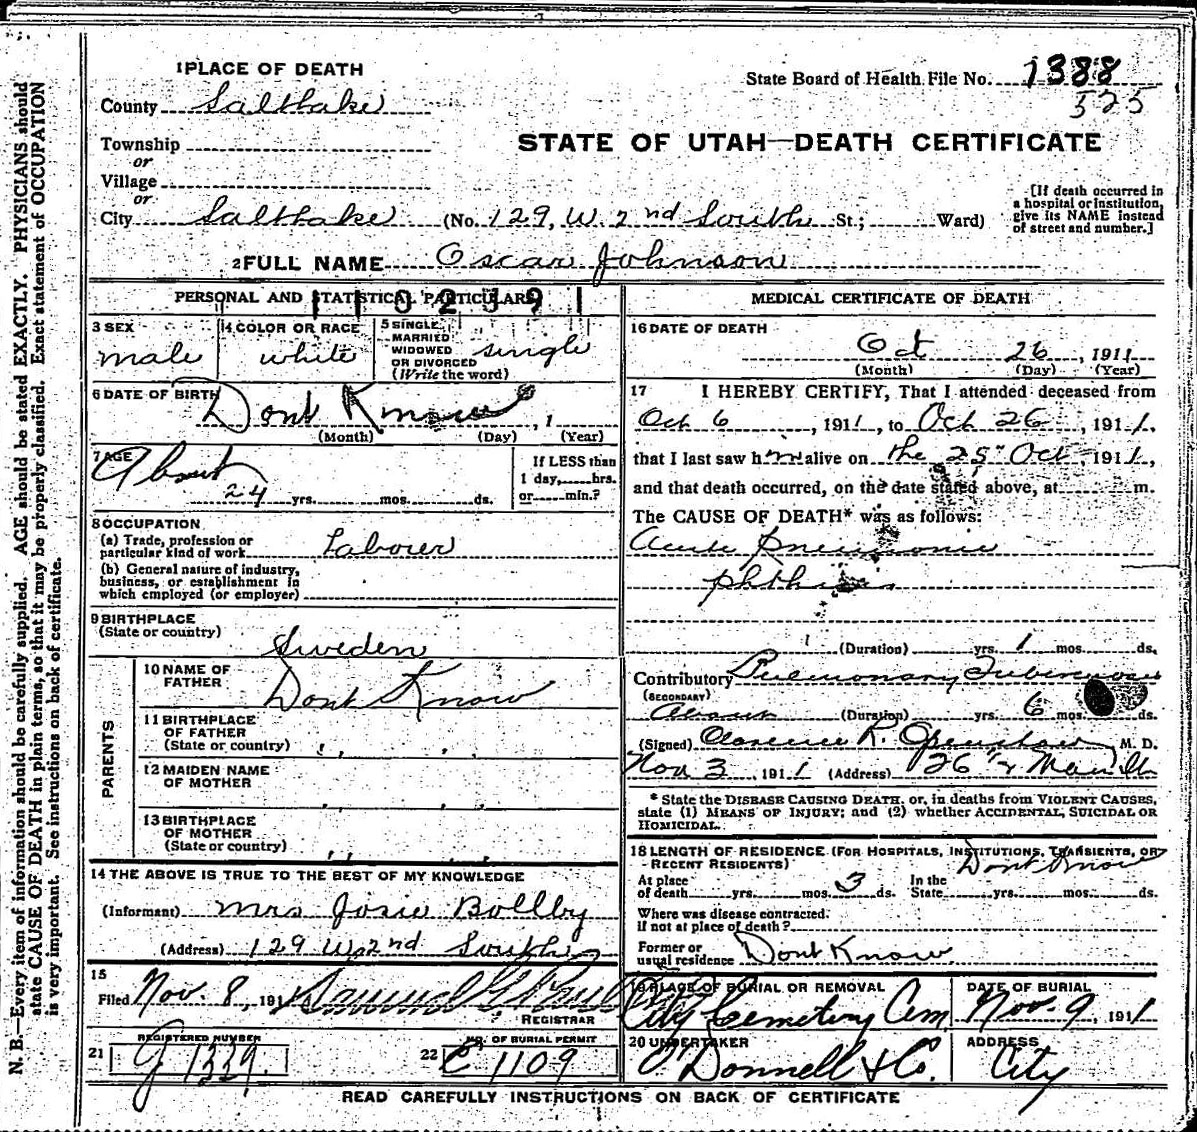 1 PLACE OF DEATH
State Board of Health File No. 1388
525
County Salt Lake
STATE OF UTAH—DEATH CERTIFICATE
Township
or
Village
or
City Salt Lake (No. 129, W. 2nd South St; Ward)
[If death occurred in a hospital or institution, give its NAME instead of street and number.]
2 FULL NAME Oscar Johnson
PERSONAL AND STATISTICAL PARTICULARS
3 SEX male
4 COLOR OR RACE white
5 SINGLE, MARRIED WIDOWED OR DIVORCED (Write the word) single
6 DATE OF BIRTH Dont Know, 1
(Month) (Day) (Year)
7 AGE About 24 yrs. mos. ds.
If LESS than 1 day, hrs. or min.?
8 OCCUPATION
(a) Trade, profession or particular kind of work Laborer
(b) General nature of industry, business, or establishment in which employed (or employer)
9 BIRTHPLACE
(State or country) Sweden
PARENTS
10 NAME OF FATHER Dont Know
11 BIRTHPLACE OF FATHER (State or country) ,, ,,
12 MAIDEN NAME OF MOTHER ,, ,,
13 BIRTHPLACE OF MOTHER (State or country) ,, ,,
14 THE ABOVE IS TRUE TO THE BEST OF MY KNOWLEDGE
(Informant) Mrs Josie Bollby
(Address) 129 W 2nd South
15
Filed Nov. 8, 191
REGISTRAR
REGISTERED NUMBER
21 G 1339.
NO. OF BURIAL PERMIT
22 C 1109
MEDICAL CERTIFICATE OF DEATH
16 DATE OF DEATH
Oct 26, 1911
(Month) (Day) (Year)
17 I HEREBY CERTIFY, That I attended deceased from
Oct 6, 1911, to Oct 26, 1911,
that I last saw him alive on the 25" Oct, 1911,
and that death occurred, on the date stated above, at m.
The CAUSE OF DEATH* was as follows:
Acute Pneumonic
phthisis
(Duration) yrs. 1 mos. ds.
Contributory Pulmonary Tuberculosis
(SECONDARY)
About (Duration) yrs. 6 mos. ds.
(Signed) Clarence K. Openshaw M. D.
Nov 3, 1911 (Address) 26 1/2 Main St
* State the DISEASE CAUSING DEATH, or, in deaths from VIOLENT CAUSES, state (1) MEANS OF INJURY; and (2) whether ACCIDENTAL, SUICIDAL OR HOMICIDAL.
18 LENGTH OF RESIDENCE (FOR HOSPITALS, INSTITUTIONS, TRANSIENTS, OR RECENT RESIDENTS)
At place of death yrs. mos. 3 ds. In the State yrs. mos. ds. Dont Know
Where was disease contracted, if not at place of death?
Former or usual residence Dont Know
19 PLACE OF BURIAL OR REMOVAL City Cemetery Cem
DATE OF BURIAL Nov. 9, 1911
20 UNDERTAKER O'Donnell & Co.
ADDRESS City
READ CAREFULLY INSTRUCTIONS ON BACK OF CERTIFICATE
N. B.—Every item of information should be carefully supplied. AGE should be stated EXACTLY. PHYSICIANS should
state CAUSE OF DEATH in plain terms, so that it may be properly classified. Exact statement of OCCUPATION
is very important. See instructions on back of certificate.